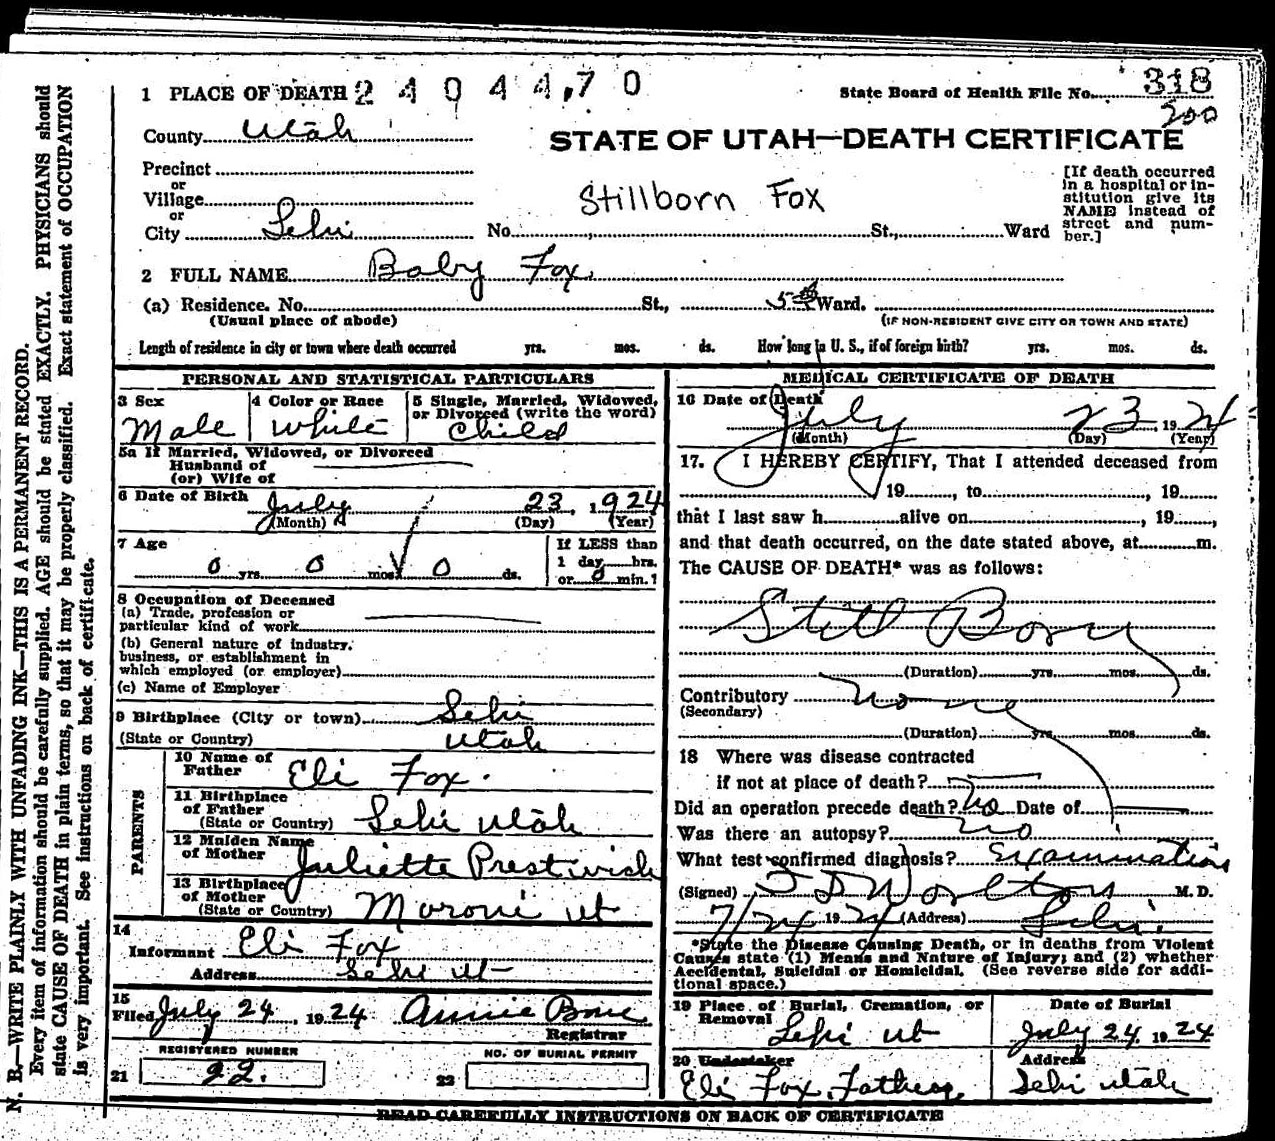 1 PLACE OF DEATH 2 4 0 4 4 4 7 0
State Board of Health File No. 318
200
County Utah
STATE OF UTAH—DEATH CERTIFICATE
Precinct
or
Village
or
City Lehi No. St., Ward
Stillborn Fox
[If death occurred
in a hospital or in-
stitution give its
NAME instead of
street and num-
ber.]
2 FULL NAME Baby Fox
(a) Residence. No. St., 5th Ward.
(Usual place of abode) (IF NON-RESIDENT GIVE CITY OR TOWN AND STATE)
Length of residence in city or town where death occurred yrs. mos. ds. How long in U. S., if of foreign birth? yrs. mos. ds.
PERSONAL AND STATISTICAL PARTICULARS
3 Sex 4 Color or Race 5 Single, Married, Widowed,
or Divorced (write the word)
Male White Child
5a If Married, Widowed, or Divorced
Husband of
(or) Wife of
6 Date of Birth July 23, 1924
(Month) (Day) (Year)
7 Age If LESS than
0 yrs. 0 mos. 0 ds. 1 day hrs.
or 0 min.?
8 Occupation of Deceased
(a) Trade, profession or
particular kind of work
(b) General nature of industry,
business, or establishment in
which employed (or employer)
(c) Name of Employer
9 Birthplace (City or town) Lehi
(State or Country) Utah
PARENTS
10 Name of
Father Eli Fox.
11 Birthplace
of Father
(State or Country) Lehi Utah
12 Maiden Name
of Mother Juliette Prestwich
13 Birthplace
of Mother
(State or Country) Moroni ut
14
Informant Eli Fox
Address Lehi ut
15
Filed July 24, 1924 Annie Bone
Registrar
REGISTERED NUMBER NO. OF BURIAL PERMIT
21 92. 22
MEDICAL CERTIFICATE OF DEATH
16 Date of Death
July 23, 1924
(Month) (Day) (Year)
17. I HEREBY CERTIFY, That I attended deceased from
19, to, 19
that I last saw h alive on, 19,
and that death occurred, on the date stated above, at m.
The CAUSE OF DEATH* was as follows:
Still Born
(Duration) yrs. mos. ds.
Contributory none
(Secondary)
(Duration) yrs. mos. ds.
18 Where was disease contracted
if not at place of death?
Did an operation precede death? No Date of
Was there an autopsy? no
What test confirmed diagnosis? Examination
(Signed) Worlton M. D.
7/24 1924 (Address) Lehi.
*State the Disease Causing Death, or in deaths from Violent
Causes state (1) Means and Nature of Injury; and (2) whether
Accidental, Suicidal or Homicidal. (See reverse side for addi-
tional space.)
19 Place of Burial, Cremation, or
Removal Lehi ut
Date of Burial
July 24 1924
20 Undertaker
Eli Fox, Father,
Address
Lehi Utah
READ CAREFULLY INSTRUCTIONS ON BACK OF CERTIFICATE
N. B.—WRITE PLAINLY WITH UNFADING INK—THIS IS A PERMANENT RECORD.
Every item of information should be carefully supplied. AGE should be stated EXACTLY. PHYSICIANS should
state CAUSE OF DEATH in plain terms, so that it may be properly classified. Exact statement of OCCUPATION
is very important. See instructions on back of certificate.